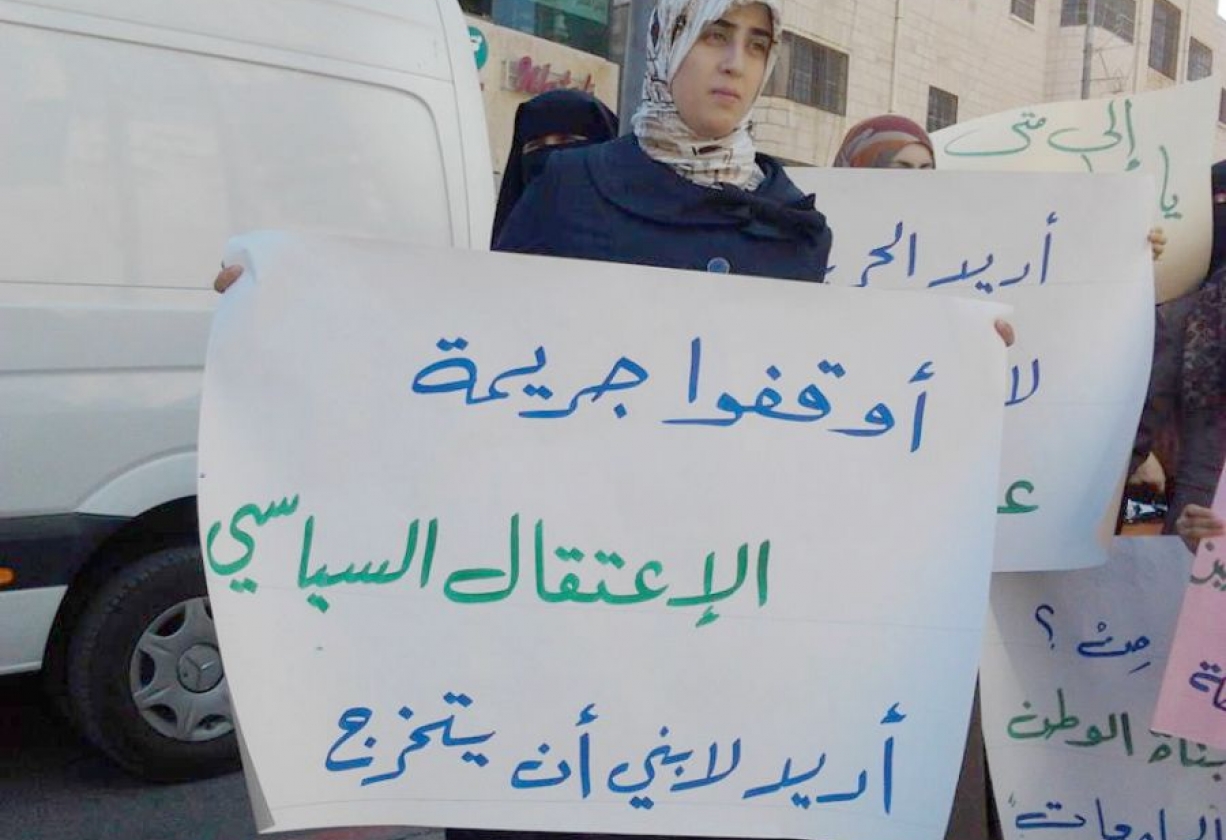 أوقفوا جريمة
الإعتقال السياسي
أريد لابني أن يتخرج
أريد
لا
إلى متى
من ؟
بناة الوطن